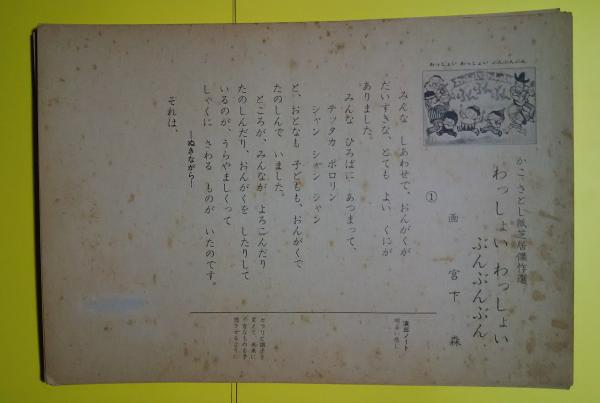 わっしょい わっしょい ぶんぶんぶん
かこ・さとし紙芝居傑作選
わっしょい わっしょい
ぶんぶんぶん
画 宮下 森
①
みんな しあわせで、おんがくが
だいすきな、とても よい くにが
ありました。
みんな ひろばに あつまって、
チッタカ ポロリン
シャン シャン シャン
と、おとなも 子どもも、おんがくで
たのしんで いました。
ところが、みんなが よろこんだり
たのしんだり、おんがくを したりして
いるのが、うらやましくって
しゃくに さわる ものが いたのです。
―ぬきながら―
それは、
演出ノート
明るい感じ
ガラリと調子を
変えて、将来に
不吉なものを予
感させるように